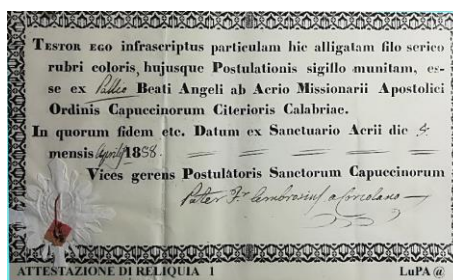 TESTOR EGO infrascriptus particulam hic alligatam filo serico
rubri coloris, hujusque Postulationis sigillo munitam, es-
se ex Pallio Beati Angeli ab Acrio Missionarii Apostolici
Ordinis Capuccinorum Citerioris Calabriae.
In quorum fidem etc. Datum ex Sanctuario Acrii die
mensis Aprilis 1858.
Vices gerens Postulatoris Sanctorum Capuccinorum
Pater Fr. Ambrosius a
ATTESTAZIONE DI RELIQUIA 1 LuPA @